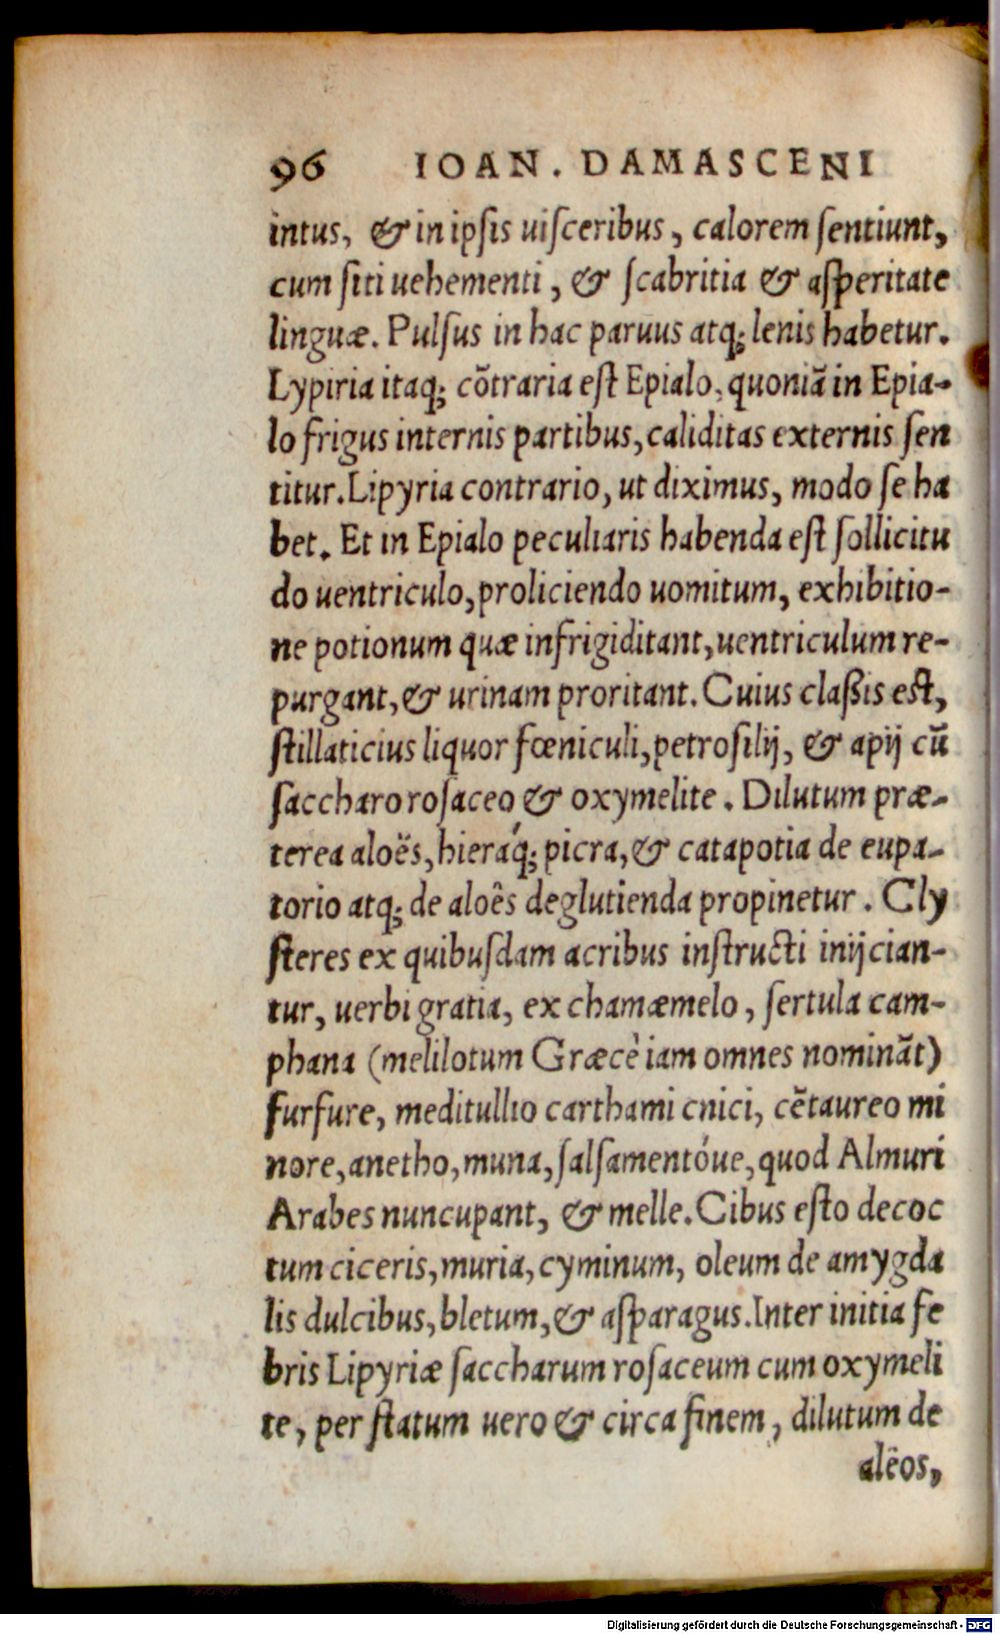 96 IOAN. DAMASCENI
intus, & in ipſis uiſceribus, calorem ſentiunt,
cum ſiti uehementi, & ſcabritia & aſperitate
linguæ. Pulſus in hac paruus atq; lenis habetur.
Lypiria itaq; cõtraria eſt Epialo, quoniã in Epia-
lo frigus internis partibus, caliditas externis ſen
titur. Lipyria contrario, ut diximus, modo ſe ha
bet. Et in Epialo peculiaris habenda eſt ſollicitu
do uentriculo, proliciendo uomitum, exhibitio-
ne potionum quæ infrigiditant, uentriculum re-
purgant, & urinam proritant. Cuius claßis eſt,
ſtillaticius liquor fœniculi, petroſilij, & apij cũ
ſaccharo roſaceo & oxymelite. Dilutum præ-
terea aloës, hieráq; picra, & catapotia de eupa-
torio atq; de aloês deglutienda propinetur. Cly
ſteres ex quibuſdam acribus inſtructi inijcian-
tur, uerbi gratia, ex chamæmelo, ſertula cam-
phana (melilotum Græcè iam omnes nominãt)
furfure, meditullio carthami cnici, cẽtaureo mi
nore, anetho, muria, ſalſamentóue, quod Almuri
Arabes nuncupant, & melle. Cibus eſto decoc
tum ciceris, muria, cyminum, oleum de amygda
lis dulcibus, bletum, & aſparagus. Inter initia fe
bris Lipyriæ ſaccharum roſaceum cum oxymeli
te, per ſtatum uero & circa finem, dilutum de
alëos,
Digitalisierung gefördert durch die Deutsche Forschungsgemeinschaft - DFG